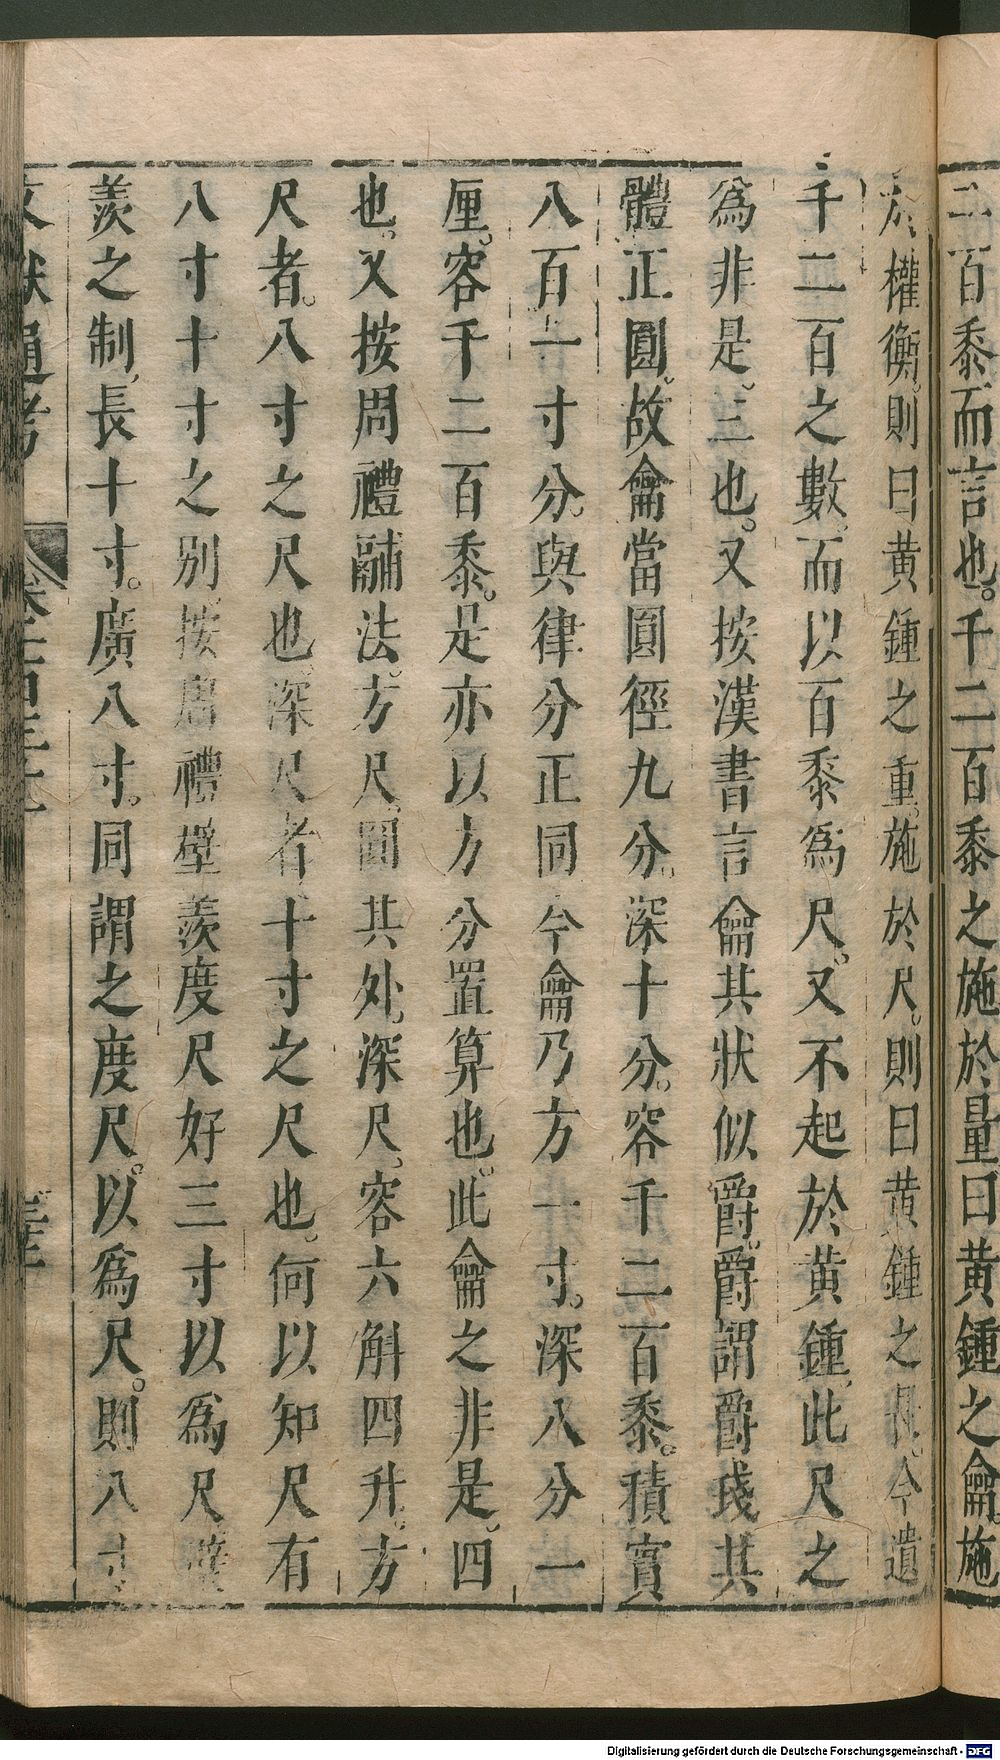 二百黍而言也。千二百黍之施於量曰黄鍾之龠。施
於權衡。則曰黄鍾之重。施於尺。則曰黄鍾之長。今遺
千二百之數。而以百黍爲尺。又不起於黄鍾。此尺之
爲非是。三也。又按漢書言龠其狀似爵。爵謂爵琖。其
體正圓。故龠當圓徑九分。深十分。容千二百黍。積實
八百一十寸分。與律分正同。今龠乃方一寸。深八分一
厘。容千二百黍。是亦以方分置算也。此龠之非是。四
也。又按周禮鬴法。方尺。圓其外。深尺。容六斛四升。方
尺者。八寸之尺也。深尺者。十寸之尺也。何以知尺有
八寸十寸之别。按周禮璧羨度尺好三寸以爲尺。璧
羨之制。長十寸。廣八寸。同謂之度尺。以爲尺。則八寸
文獻通考
Digitalisierung gefördert durch die Deutsche Forschungsgemeinschaft - DFG